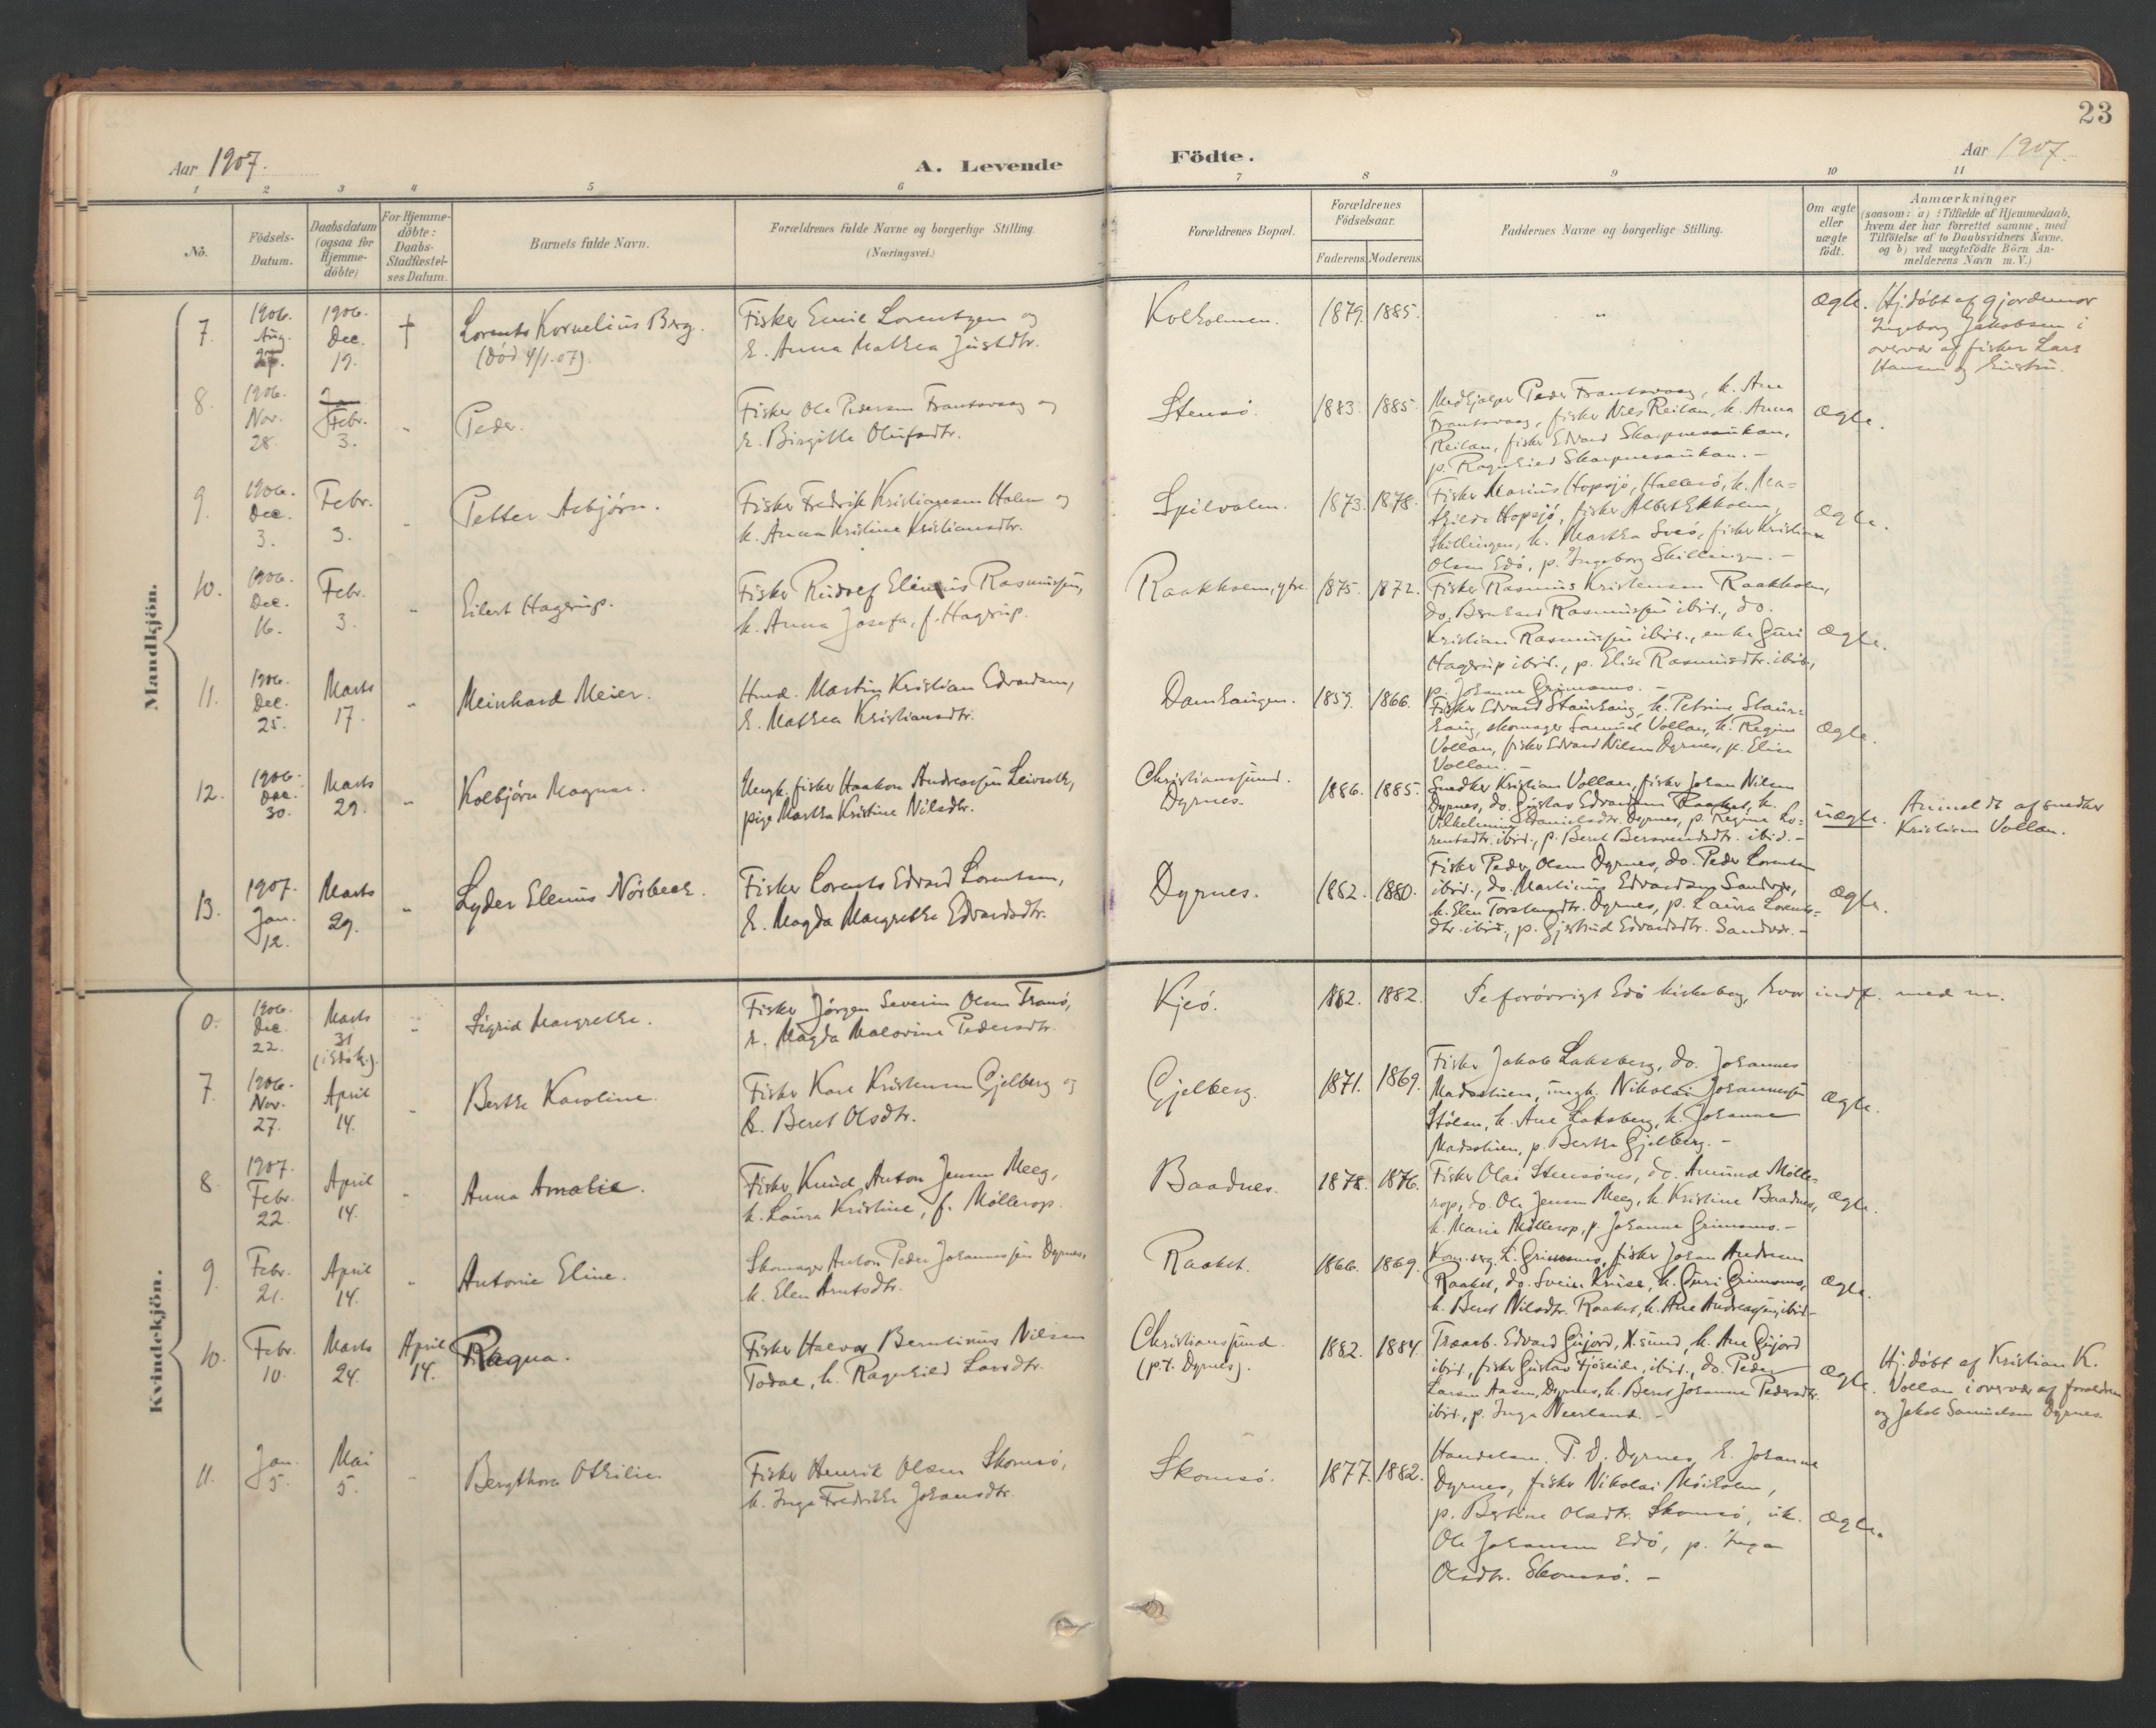 23
Aar 1907.
A. Levende
Födte.
Aar 1907.
1 2 3 4 5 6 7 8 9 10 11
No.
Födsels-
Datum.
Daabsdatum
(ogsaa for
Hjemme-
döbte)
For Hjemme-
döbte:
Daabs-
Stadfæstel-
ses Datum.
Barnets fulde Navn.
Forældrenes fulde Navne og borgerlige Stilling.
(Næringsvei.)
Forældrenes Bopæl.
Forældrenes
Födselsaar.
Faderens. Moderens.
Faddernes Navne og borgerlige Stilling.
Om ægte
eller
uægte
födt.
Anmærkninger
(saasom: a) : Tilfælde af Hjemmedaab,
hvem der har forrettet samme, med
Tilföielse af to Daabsvidners Navne,
og b) ved uægtefödte Börn An-
melderens Navn m. V.)
Mandkjön.
7.
1906.
Aug.
27.
1906.
Dec.
19.
†
Lorents Kornelius Berg.
(död 4/1.07).
Fisker Emil Lorentzen og
h. Anna Mathea Justdtr.
Kolholmen.
1879. 1885.
"
Ægte.
Hj.döbt af gjordemor
Ingeborg Jakobsen i
overvær af fisker Lars
Hansen og hustru.
8.
1906.
Nov.
28.
Febr.
3.
"
Peder.
Fisker Ole Pedersen Frantsvaag og
h. Birgitte Olufsdtr.
Stensö.
1883. 1885.
Medhjelper Peder Frantsvaag, k. Ane
Frantsvaag, fisker Nils Reitan, k. Anna
Reitan, fisker Edvard Skarpnesaukan,
p. Ragnhild Skarpnesaukan. –
Ægte.
9.
1906.
Dec.
3.
Febr.
3.
"
Petter Asbjörn.
Fisker Fredrik Kristiansen Holm og
k. Anna Kristine Kristiansdtr.
Spilvolen.
1873. 1878.
Fisker Marius Hopsjö, k. Ma=
thilde Hopsjö, fisker Albert Ekholm,
Skillingen, k. Martha Sveö, fisker Kristian
Olsen Edö, p. Ingeborg Skillingen. –
Ægte.
10.
1906.
Dec.
16.
Febr.
3.
"
Eilert Hagerup.
Fisker Rudolf Elenius Rasmussen,
k. Anna Josefa, f. Hagerup.
Raakholm, ytre.
1875. 1872.
Fisker Rasmus Kristensen Raakholm,
do. Bernhard Rasmussen ibid., do.
Kristian Rasmussen ibid., enke Guri
Hagerup ibid., p. Elise Rasmusdtr. ibid.,
p. Johanne Grimsmo. –
Ægte.
11.
1906.
Dec.
25.
Marts
17.
"
Meinhard Meier.
Hmd. Martin Kristian Edvardsen,
h. Mathea Kristiansdtr.
Damhaugen.
1859. 1866.
Fisker Edvard Staurhaug, k. Petrine Staur=
haug, skomager Samuel Vollan, k. Regine
Vollan, fisker Edvard Nilsen Dyrnes, p. Elise
Vollan. –
Ægte.
12.
1906.
Dec.
30.
Marts
29.
"
Kolbjörn Magnar.
Ungk. fisker Haakon Andreassen Leirvik,
pige Martha Kristine Nilsdtr.
Christianssund.
Dyrnes.
1886. 1885.
Snedker Kristian Vollan, fisker Johan Nilsen
Dyrnes, do. Gustav Edvardsen Raaket, k.
Vilhelmine Danielsdtr. Dyrnes, p. Regine Lo=
rentsdtr. ibid., p. Beret Bersvendsdtr. ibid. –
uægte.
Anmeldt af snedker
Kristian Vollan.
13.
1907.
Jan.
12.
Marts
29.
"
Lyder Elenius Norbeck.
Fisker Lorents Edvard Lorentsen,
h. Magda Margrethe Edvardsdtr.
Dyrnes.
1882. 1880.
Fisker Peder Olsen Dyrnes, do. Peder Lorentsen
ibid., do. Martinus Edvardsen Sandvær,
k. Elen Torstensdtr. Dyrnes, p. Laura Lorents=
dtr. ibid., p. Gjertrud Edvardsdtr. Sandvær. –
Ægte.
Kvindekjön.
0.
1906.
Dec.
22.
Marts
31
(i Edö k.).
"
Sigrid Margrethe.
Fisker Jörgen Severin Olsen Tranö,
h. Magda Malvine Pedersdtr.
Kjeö.
1882. 1882.
Se forövrigt Edö kirkebog, hvor indf. med nr.
7.
1906.
Nov.
27.
April
14.
"
Berthe Karoline.
Fisker Karl Kristensen Gjelberg og
h. Beret Olsdtr.
Gjelberg.
1871. 1869.
Fisker Jakob Laksberg, do. Johannes
Madsstuen, ungk. Nikolai Johannessen
Stölen, k. Ane Laksberg, k. Johanne
Madsstuen, p. Berthe Gjelberg. –
Ægte.
8
1907.
Febr.
22.
April
14.
"
Anna Amalie.
Fisker Knud Anton Jensen Meeg,
k. Laura Kristine, f. Möllerop.
Baadnes.
1878. 1876.
Fisker Olai Stensönes, do. Amund Mölle=
rop, do. Ole Jensen Meeg, k. Kristine Baadnes,
k. Marie Möllerop, p. Johanne Grimsmo. –
Ægte.
9.
Febr.
21.
April
14.
"
Antonie Eline.
Skomager Anton Peder Johannessen Dyrnes,
k. Elen Arntsdtr.
Raaket.
1866. 1869.
Kirkesg. L. Grimsmo, fisker Johan Andersen
Raaket, do. Svein Kruse, k. Guri Grimsmo,
k. Beret Nilsdtr. Raaket, k. Ane Andreassen, ibid –
Ægte.
10.
Febr.
10.
Marts
24.
April
14.
Ragna.
Fisker Halvor Berntinus Nilsen
Todal, k. Ragnhild Larsdtr.
Christianssund
(p.t. Dyrnes).
1882. 1884.
Træarb. Edvard Gujord, X.sund, k. Ane Gujord
ibid., fisker Gustav Fjöseide, ibid., do. Peder
Larsen Aasen, Dyrnes, k. Beret Johanna Pedersdtr.
ibid., p. Inga Neerland. –
Ægte.
Hj.döbt af Kristian K.
Vollan i overvær af forældrene
og Jakob Samuelsen Dyrnes.
11.
Jan.
5.
Mai
5.
"
Bergthora Othilie.
Fisker Henrik Olsen Skomsö,
k. Inga Fredrikke Johansdtr.
Skomsö.
1877. 1882.
Handelsm. P. D. Dyrnes, h. Johanne
Dyrnes, fisker Nikolai Möiholm,
p. Bertine Olsdtr. Skomsö, uk.
Ole Johansen Edö, p. Inga
Olsdtr. Skomsö. –
Ægte.